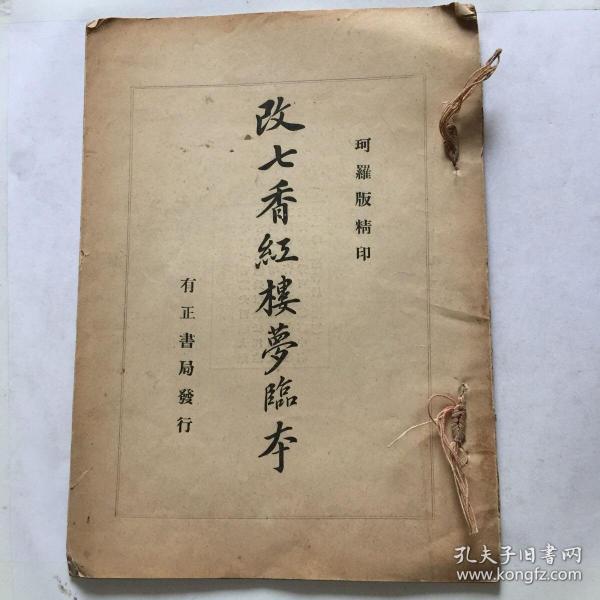 珂羅版精印
改七香紅樓夢臨本
有正書局發行
孔夫子旧書网
www.kongfz.com